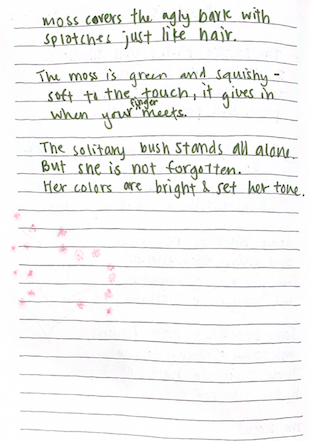 moss covers the agly bark with
splotches just like hair.
The moss is green and squishy -
soft to the touch, it gives in
when your finger meets.
The solitary bush stands all alone.
But she is not forgotten.
Her colors are bright & set her tone.